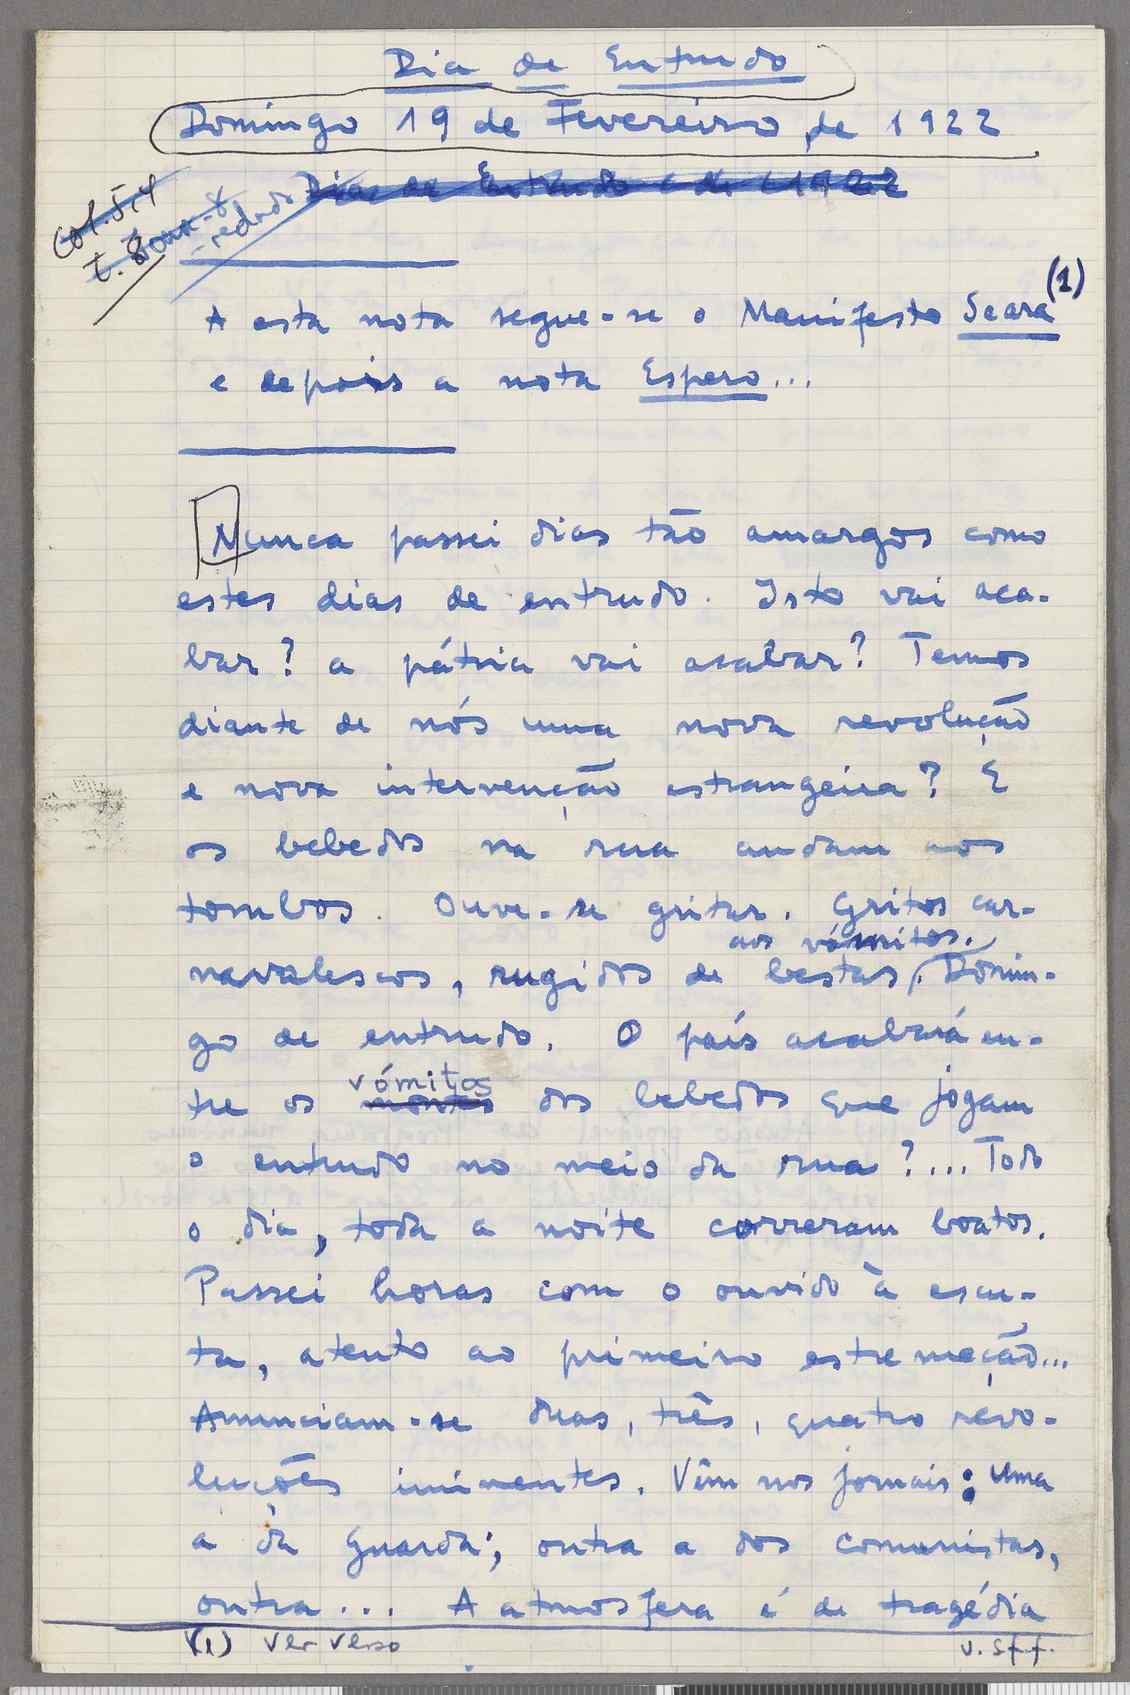 Dia de Entrudo
Domingo 19 de Fevereiro, de 1922
Dias de Entrudo de 1922
A esta nota segue-se o Manifesto Seara (1)
e depois a nota Espero...
Nunca passei dias tão amargos como
estes dias de entrudo. Isto vai aca-
bar? a pátria vai acabar? Temos
diante de nós uma nova revolução
e nova intervenção estrangeira? E
os bebedos na rua andam aos
tombos. Ouve-se gritar. Gritos car-
aos vómitos.
navalescos, rugidos de bestas. Domin-
go de entrudo. O país acabará en-
vómitos
tre os montes dos bebedos que jogam
o entrudo no meio da rua?... Todo
o dia, toda a noite correram boatos.
Passei horas com o ouvido à escu-
ta, atento ao primeiro estremeção...
Anunciam-se duas, três, quatro revo-
luções iminentes. Vêm nos jornais: uma
a da Guarda; outra a dos comunistas,
outra... A atmosfera é de tragédia
(1) Ver verso
v. sff.